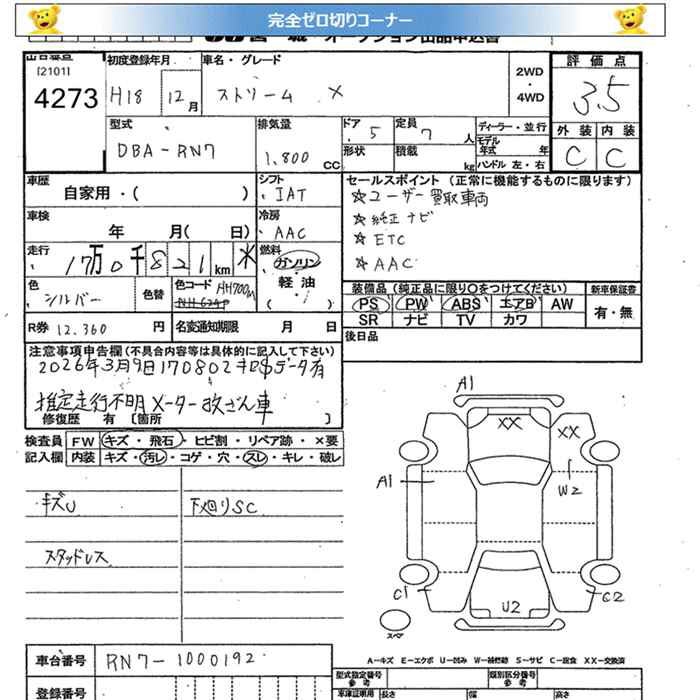 完全ゼロ切りコーナー
オークション出品申込書
[2101]
4273
初度登録年月
H18 12月
車名・グレード
ストリーム X
2WD
・
4WD
評価点
3.5
型式
DBA-RN7
排気量
1,800 CC
ドア 5
形状
定員 7 人
積載 kg
ディーラー・並行
モデル年式 年
ハンドル 左・右
外装 内装
C C
車歴
自家用・( )
シフト
IAT
セールスポイント (正常に機能するものに限ります)
☆ユーザー買取車両
☆純正ナビ
☆ETC
☆AAC
車検
年 月( 日)
冷房
AAC
走行
17万0千821km
燃料
ガソリン
・
軽油
( )
色
シルバー
色替
色コード NH700M
NH-624P
装備品(純正品に限り○をつけてください)
PS PW ABS エアB AW
SR ナビ TV カワ
新車保証書
有・無
R券 12,360 円
名変通知期限 月 日
後日品
注意事項申告欄(不具合内容等は具体的に記入して下さい)
2026年3月9日170802キロSデータ有
推定走行不明 メーター改ざん車
修復歴 有 〔箇所 〕
検査員記入欄
FW キズ・飛石・ヒビ割・リペア跡・×要
内装 キズ・汚レ・コゲ・穴・スレ・キレ・破レ
キズU
下廻りSC
スタッドレス
A1
XX
XX
A1
W2
C1
C2
U2
スペア
A-キズ E-エクボ U-凹み W-補修跡 S-サビ C-腐食 XX-交換済
車台番号
RN7-1000192
登録番号
型式指定番号
参考
類別区分番号
参考
車庫証明用
長さ 幅 高さ